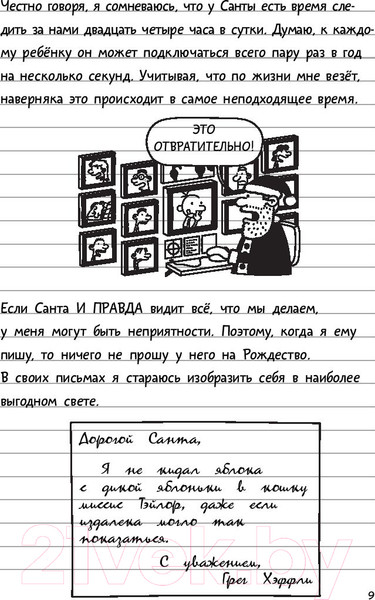 Честно говоря, я сомневаюсь, что у Санты есть время сле-
дить за нами двадцать четыре часа в сутки. Думаю, к каждо-
му ребёнку он может подключаться всего пару раз в год
на несколько секунд. Учитывая, что по жизни мне везёт,
наверняка это происходит в самое неподходящее время.
ЭТО
ОТВРАТИТЕЛЬНО!
Если Санта И ПРАВДА видит всё, что мы делаем,
у меня могут быть неприятности. Поэтому, когда я ему
пишу, то ничего не прошу у него на Рождество.
В своих письмах я стараюсь изобразить себя в наиболее
выгодном свете.
Дорогой Санта,
Я не кидал яблока
с дикой яблоньки в кошку
миссис Тэйлор, даже если
издалека могло так
показаться.
С уважением,
Грег Хэффли
9
21vek.by